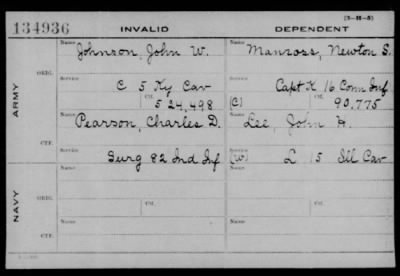 (3-H-5)
134936 INVALID DEPENDENT
ARMY
ORIG.
Name Johnson, John W. Name Manross, Newton S.
Service C 5 Ky Cav Service Capt K 16 Conn Inf
Ctf. 524,498 (C) Ctf. 90.775
CTF.
Name Pearson, Charles D. Name Lee, John H.
Service Surg 82 Ind Inf Service (W) L 15 Ill Cav
NAVY
ORIG.
Name Name
Service Ctf. Service Ctf.
CTF.
Name Name